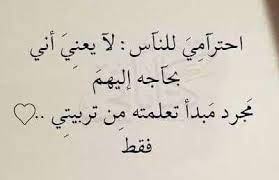 احترآمِيَ للنآس : لآ يعنِيَ أني
بحآجه إليهمَ
مَجرد مَبدأ تعلمته مِن تربيتِي ..♡
فقط